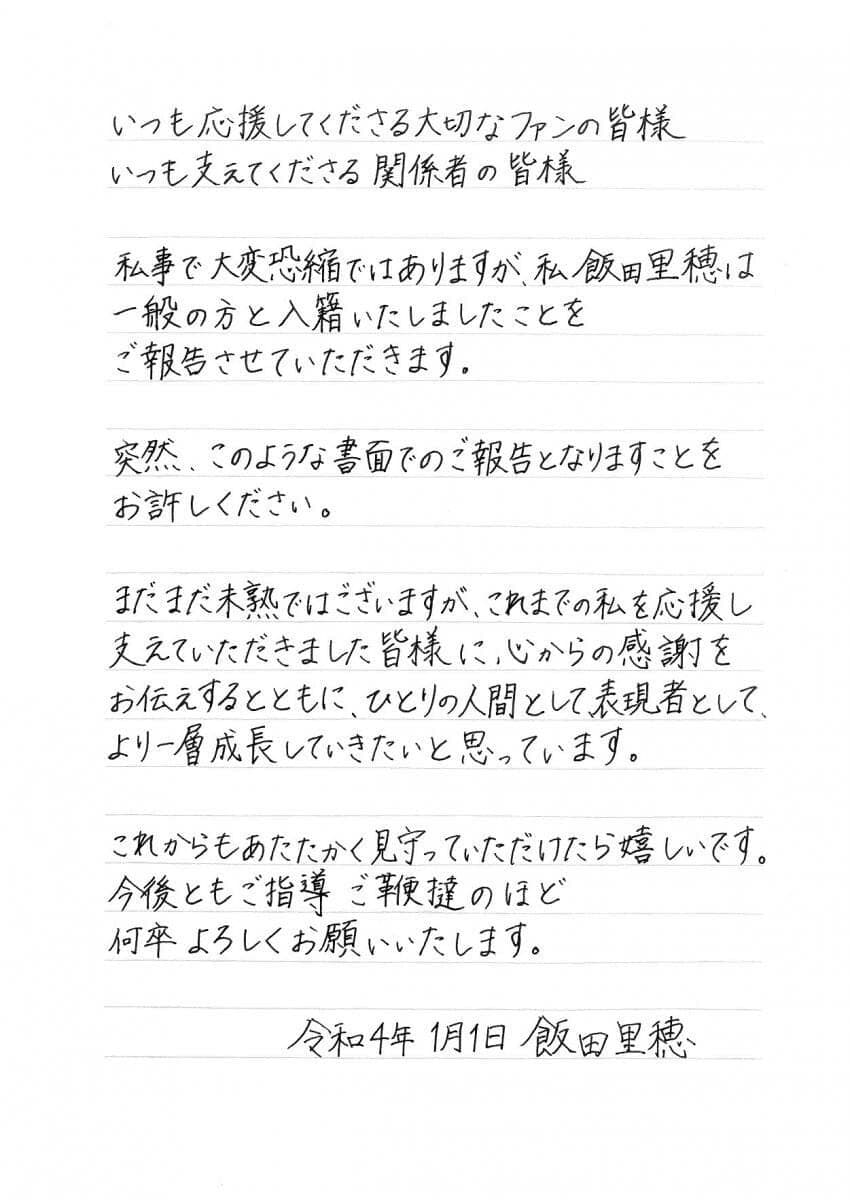 いつも応援してくださる大切なファンの皆様
いつも支えてくださる関係者の皆様
私事で大変恐縮ではありますが、私 飯田里穂は
一般の方と入籍いたしましたことを
ご報告させていただきます。
突然、このような書面でのご報告となりますことを
お許しください。
まだまだ未熟ではございますが、これまでの私を応援し
支えていただきました皆様に、心からの感謝を
お伝えするとともに、ひとりの人間として、表現者として、
より一層成長していきたいと思っています。
これからもあたたかく見守っていただけたら嬉しいです。
今後ともご指導 ご鞭撻のほど
何卒 よろしくお願いいたします。
令和4年 1月1日 飯田里穂